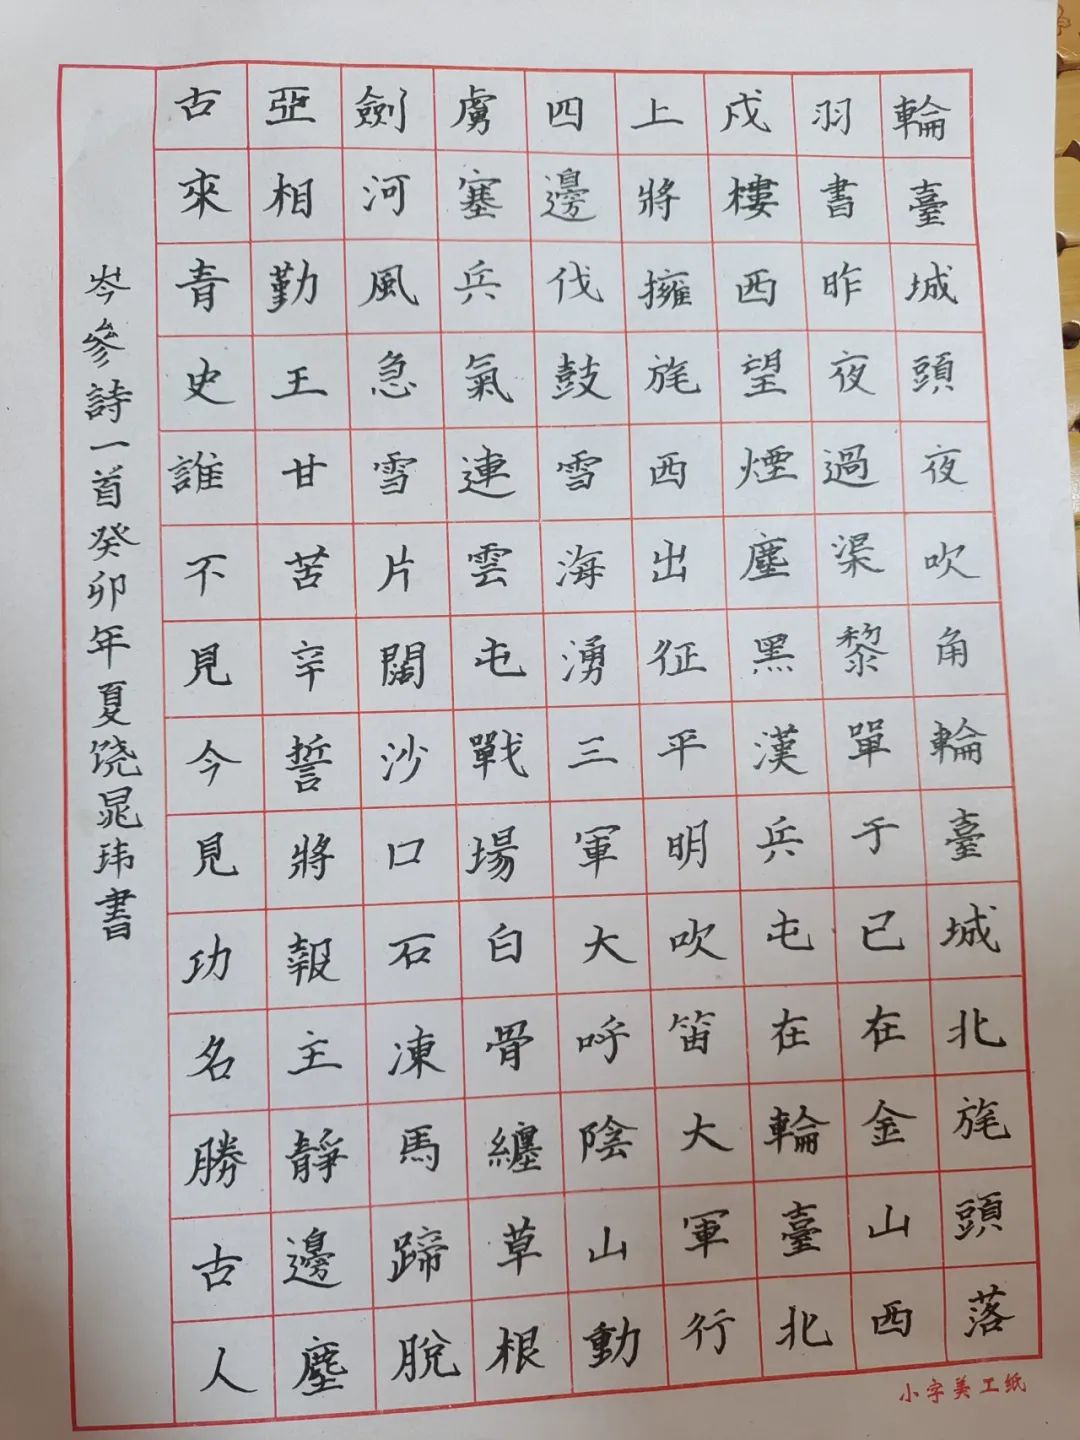 輪臺城頭夜吹角輪臺城北旄頭落
羽書昨夜過渠黎單于已在金山西
戍樓西望煙塵黑漢兵屯在輪臺北
上將擁旄西出征平明吹笛大軍行
四邊伐鼓雪海湧三軍大呼陰山動
虜塞兵氣連雲屯戰場白骨纏草根
劍河風急雪片闊沙口石凍馬蹄脫
亞相勤王甘苦辛誓將報主靜邊塵
古來青史誰不見今見功名勝古人
岑參詩一首癸卯年夏饶晁玮書
小字美工纸